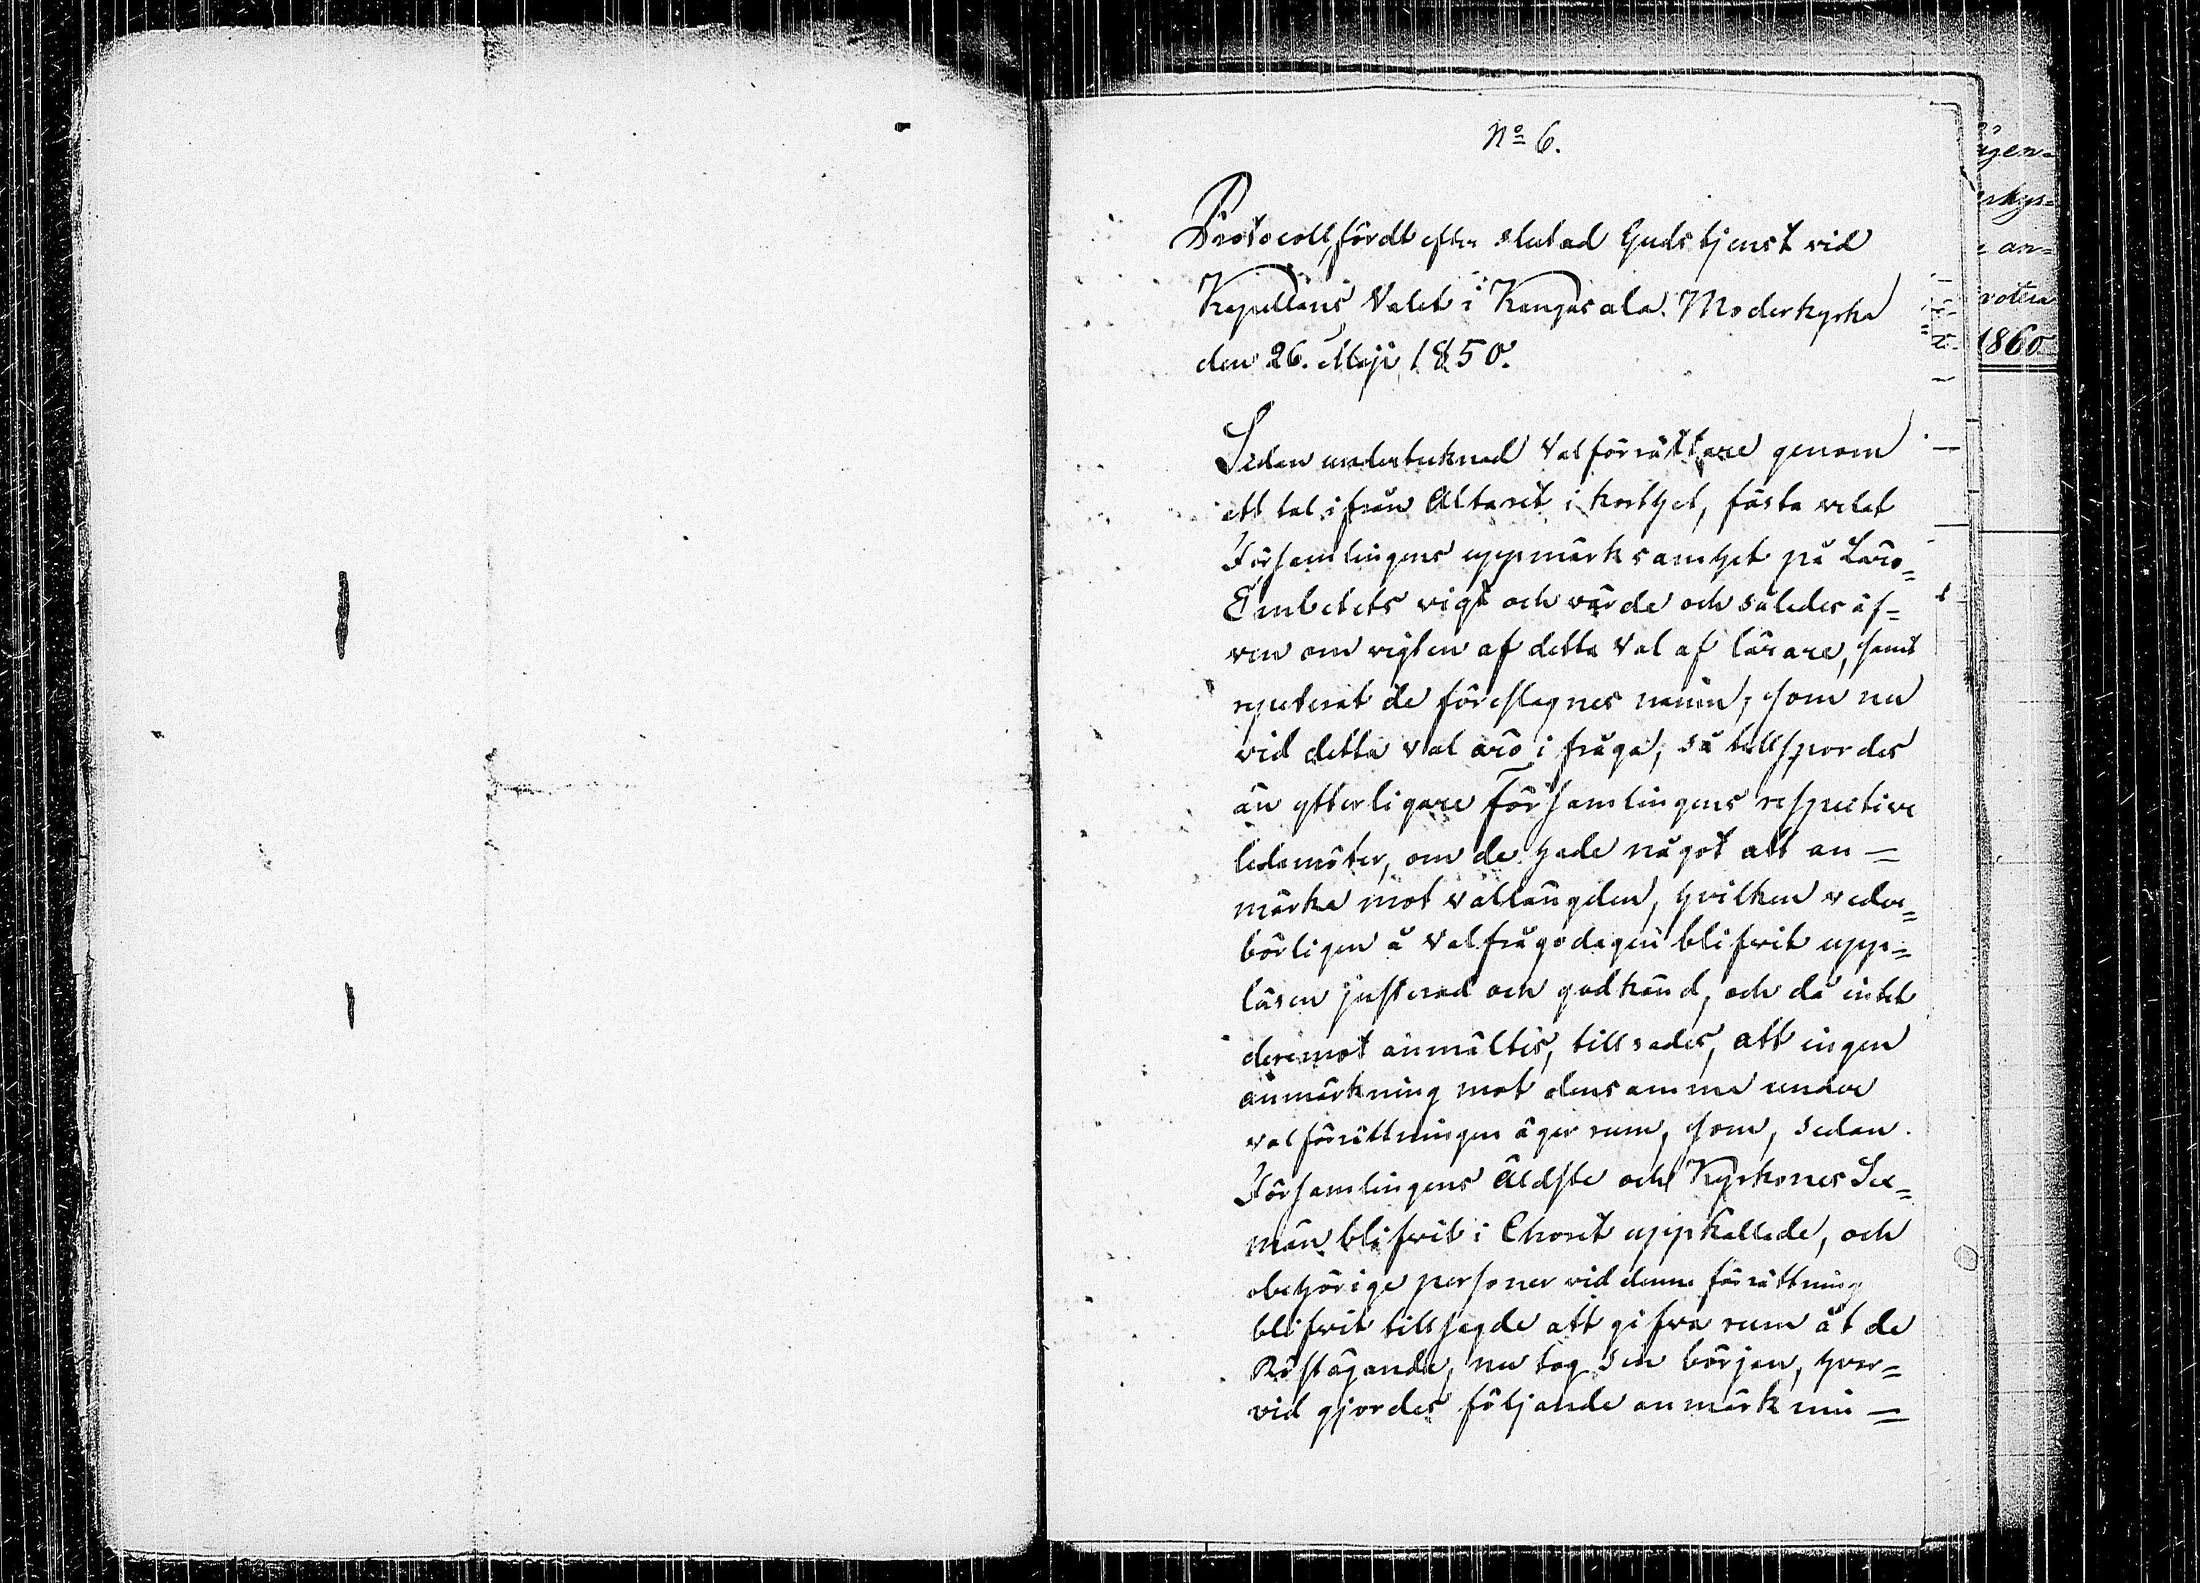 No 6.
Protocoll, fördt efter slutad Gudstjenst vid
Kapellans Valet i Kangasala Moderkyrka
den 26. Maji 1850.
Sedan undertecknad Valförrättare genom
ett tal ifrån Altaret i korthet, fästa velat
Församlingens uppmärksamhet på Läro-
Embetets vigt och värde och således äf-
ven om vigten af detta Val af lärare, samt
repeterat de föreslagnes namn, som nu
vid detta val äro i fråga, så tillspordes
än ytterligare Församlingens respective
ledamöter, om de hade något att an-
märka mot vallängden, hvilken veder-
börligen å Valfrågodagen blifvit upp-
läsen justerad och godkänd, och då intet
deremot anmältes, tillsades, att ingen
anmärkning mot densamma under
valförrättningen äger rum, som, sedan
Församlingens Äldste och Kyrkones Sex-
män blifvit i Choret uppkallade, och
obehörige personer vid denna förrättning
blifvit tillsagde att gifva rum åt de
Röstägande, nu tog sin början, hvar-
vid gjordes följande anmärknin-
ägen-
an-
votera
1860